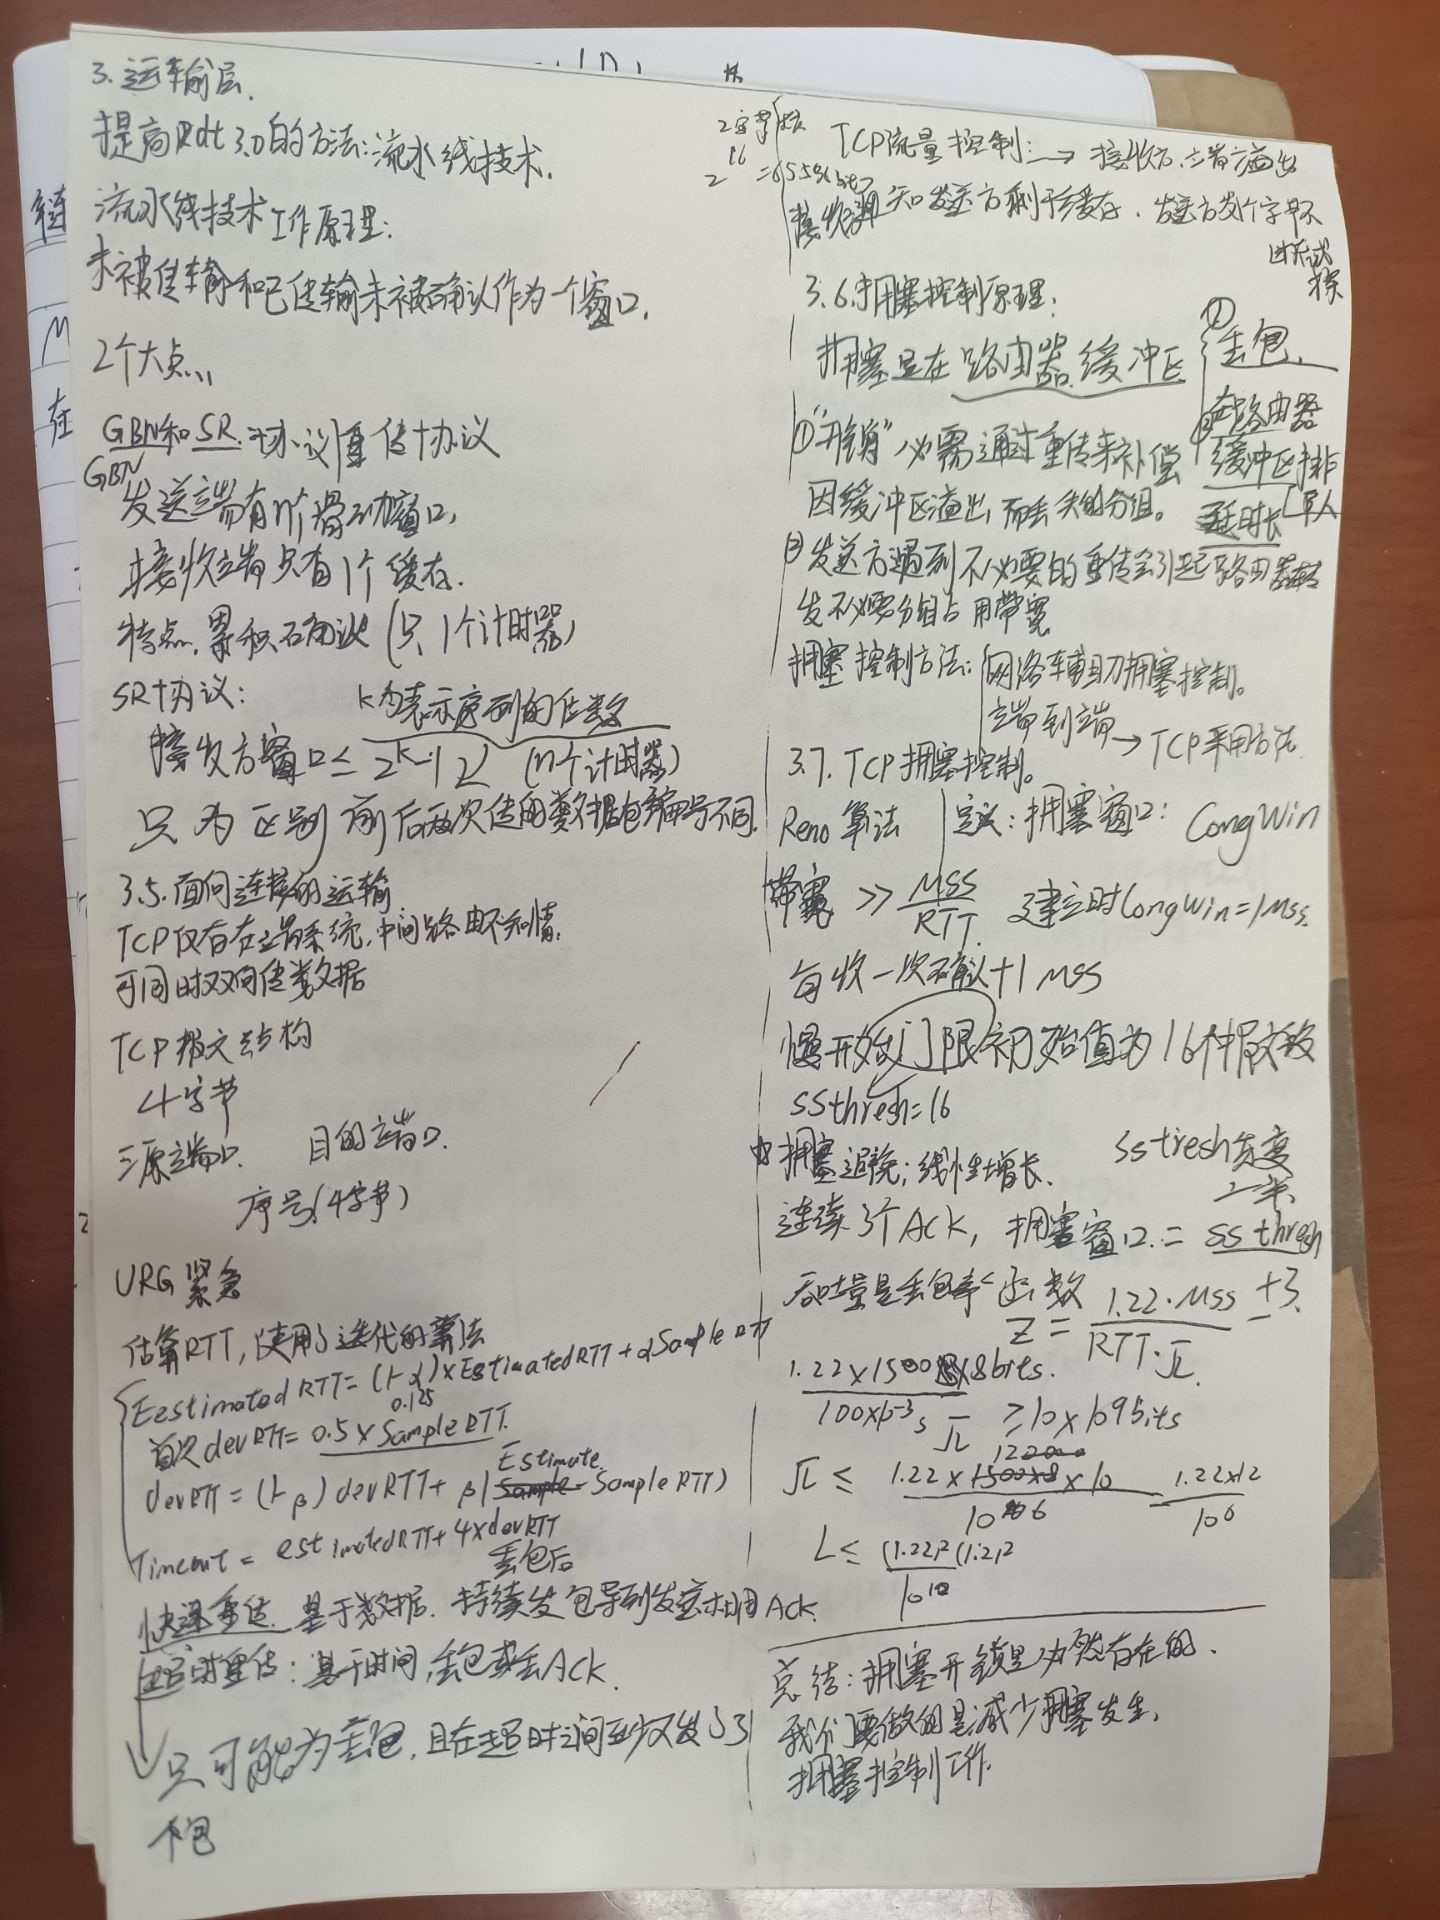 3.运输层.
提高Rdt 3.0的方法:流水线技术.
流水线技术工作原理:
未被传输和已传输未被确认作为一个窗口.
2个大点
GBN和SR.协议重传协议
GBN
发送端有1个滑动窗口,
接收端只有1个缓存.
特点.累积确认(只1个计时器)
SR协议: K为表示序列的位数
接收方窗口≤ 2^k-1 (n个计时器)
只为区别前后两次传的数据包编号不同.
3.5.面向连接的运输
TCP仅存在端系统,中间路由不知情.
可同时双向传数据
TCP报文结构
4字节
源端口. 目的端口.
序号(4字节)
URG 紧急
估算RTT,使用了迭代的算法
EestimatedRTT=(1-α)×EstimatedRTT+αSampleRTT
0.125
首次devRTT=0.5×SampleRTT.
Estimate
devRTT=(1-β)devRTT+β|Sample-SampleRTT)
Timeout= estimatedRTT+4×devRTT
丢包后
快速重传.基于数据.持续发包导到发送相同ACK.
超时重传:基于时间,丢包或丢ACK.
只可能为丢包,且在超时之间至少又发了3
个包
2字节
2^16=65536bit
TCP流量控制:→接收方.端溢出
接收方通知发送方剩于缓存.发送方发1个字节不
断试
探
3.6.拥塞控制原理:
拥塞是在路由器缓冲区
①丢包.
②在路由器
缓冲区排
延时长
①"开销"必需通过重传来补偿
因缓冲区溢出而丢失的分组。
②发送方遇到不必要的重传会引起路由器转
发不必要分组占用带宽
拥塞控制方法:网络辅助拥塞控制。
端到端→TCP采用方法
3.7.TCP拥塞控制。
Reno算法 定义:拥塞窗口: CongWin
带宽 >> MSS/RTT 建立时CongWin=1MSS.
每收一次确认+1MSS
慢开始门限初始值为16个报文段
ssthresh=16
拥塞避免;线性增长. sstresh先变
一半
连续3个ACK,拥塞窗口=ssthresh
+3.
吞吐量是丢包率L函数
Z= 1.22·MSS/RTT·√L
1.22×1500×8bits./100×10^-3 s √L ≥10×10^9bits
√L ≤ 1.22×1500×8×10/10^6 = 1.22×12/10^6
L≤ (1.22)²(1.2)²/10^10
总结:拥塞开销是必然存在的.
我们要做的是减少拥塞发生,
拥塞控制工作.